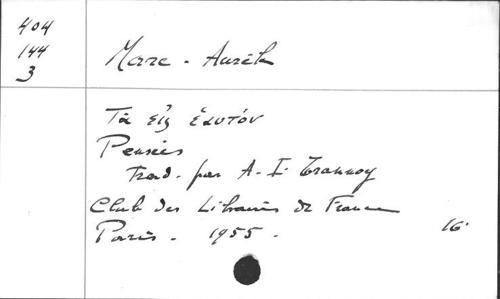 404
144
3
Marc - Aurèle
Τὰ εἰς ἑαυτόν
Pensées
Trad. par A. I. Trannoy
Club des Libraires de France
Paris - 1955.
16.